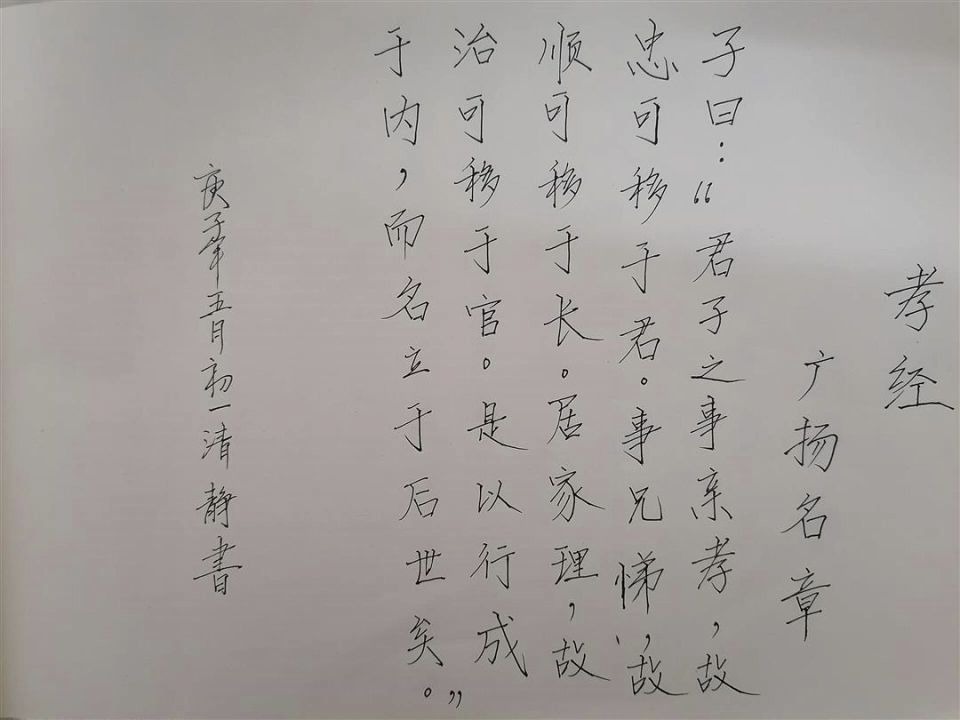 孝经
广扬名章
子曰：“君子之事亲孝，故
忠可移于君。事兄悌，故
顺可移于长。居家理，故
治可移于官。是以行成
于内，而名立于后世矣。”
庚子年五月初一清静书